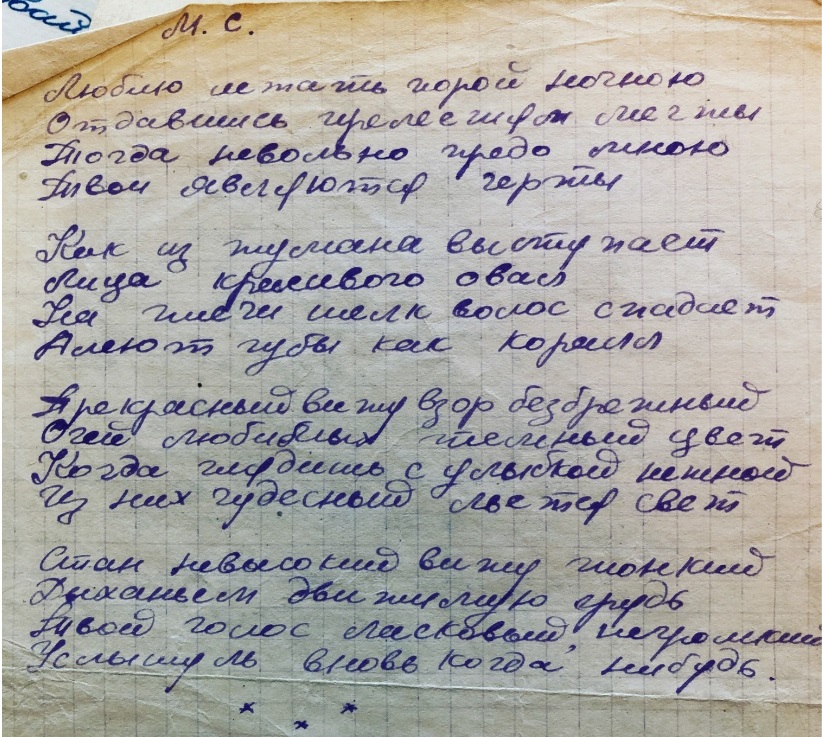 М. С.
Люблю лежать порой ночною
Отдавшись прелестям мечты
Тогда невольно предо мною
Твои являются черты
Как из тумана выступает
Лица красивого овал
На плечи шелк волос спадает
Алеют губы как коралл
Прекрасный вижу взор безбрежный
Очей любимых темный цвет
Когда глядишь с улыбкой нежной
Из них чудесный льется свет
Стан невысокий вижу тонкий
Дыханьем движимую грудь
Твой голос ласковый, негромкий
Услышу ль вновь когда нибудь.
* * *